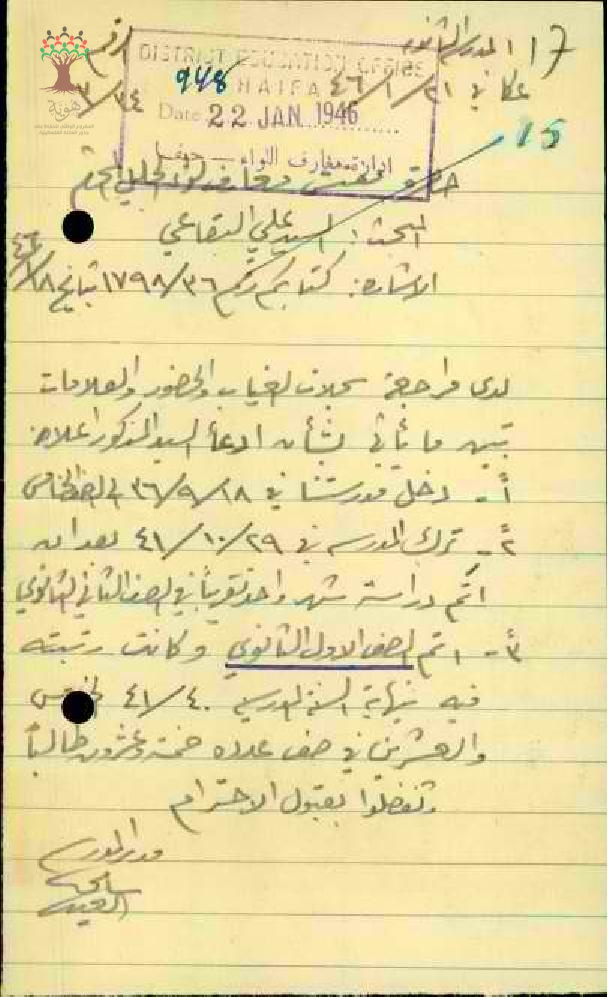 المدرسة الثانوية
الرقم ٣/٣٤
عكا في ٢١/١/٤٦
17
DISTRICT EDUCATION OFFICE
HAIFA
948
Date 22 JAN 1946
ادارة معارف اللواء — حيفا
15
هوية
حضرة مفتش معارف لواء الجليل المحترم
المبحث: السيد علي البقاعي
الاشارة: كتابكم رقم ١٧٩٨/٣٦ بتاريخ
لدى مراجعة سجلات الغياب والحضور والعلامات
تبين ما يأتي بشأن ادعاء السيد المذكور اعلاه:
١ـ دخل مدرستنا في ١٨/٩/٣٦ في الصف الخامس
٢ـ ترك المدرسة في ٢٩/١٠/٤١ بعد ان
اتم دراسة شهر واحد تقريباً في الصف الثاني الثانوي
٣ـ اتم الصف الاول الثانوي وكانت رتبته
فيه نهاية السنة المدرسية ٤٠/٤١ الخامس
والعشرين في صف عدده خمسة وعشرون طالباً
وتفضلوا بقبول الاحترام
مدير المدرسة